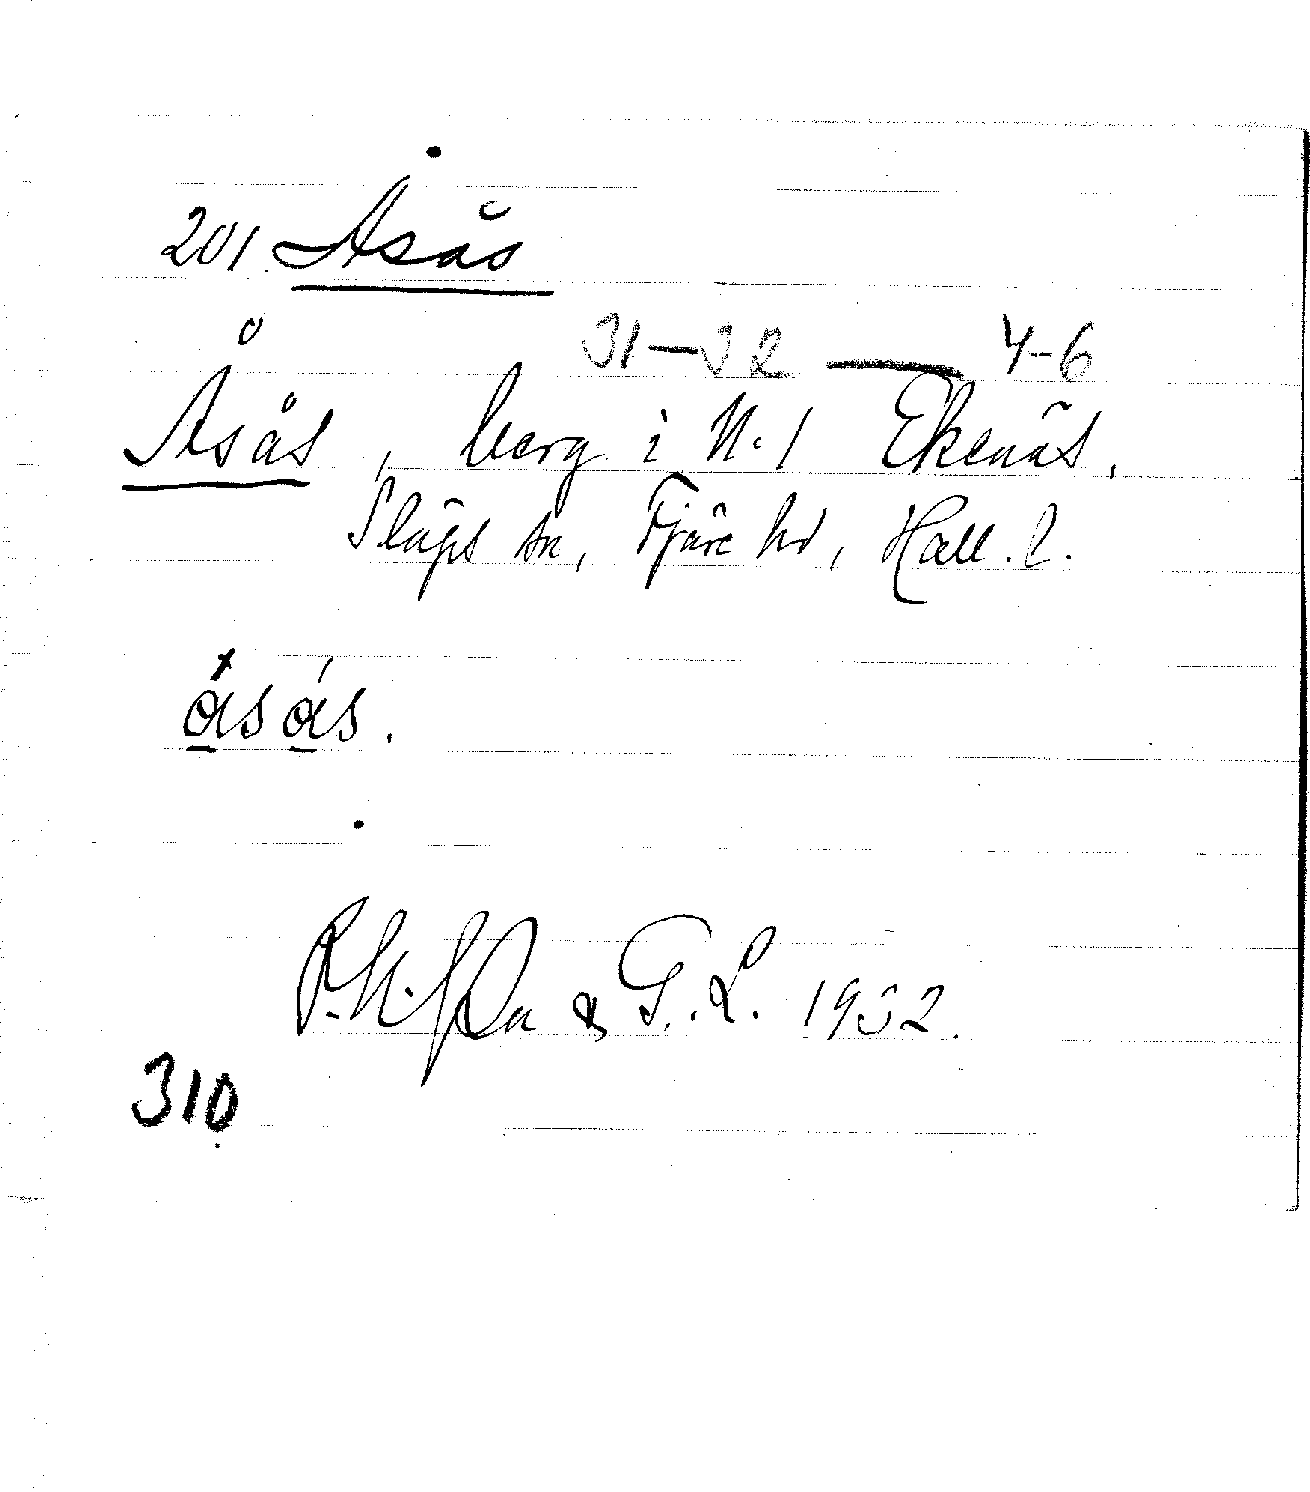 201. Åsås
31-32 — 4-6
Åsås, berg i N. 1 Ekenäs,
Släps sn, Fjäre hd, Hall. l.
ɑ̊sɑ́s.
& G. L. 1932.
310